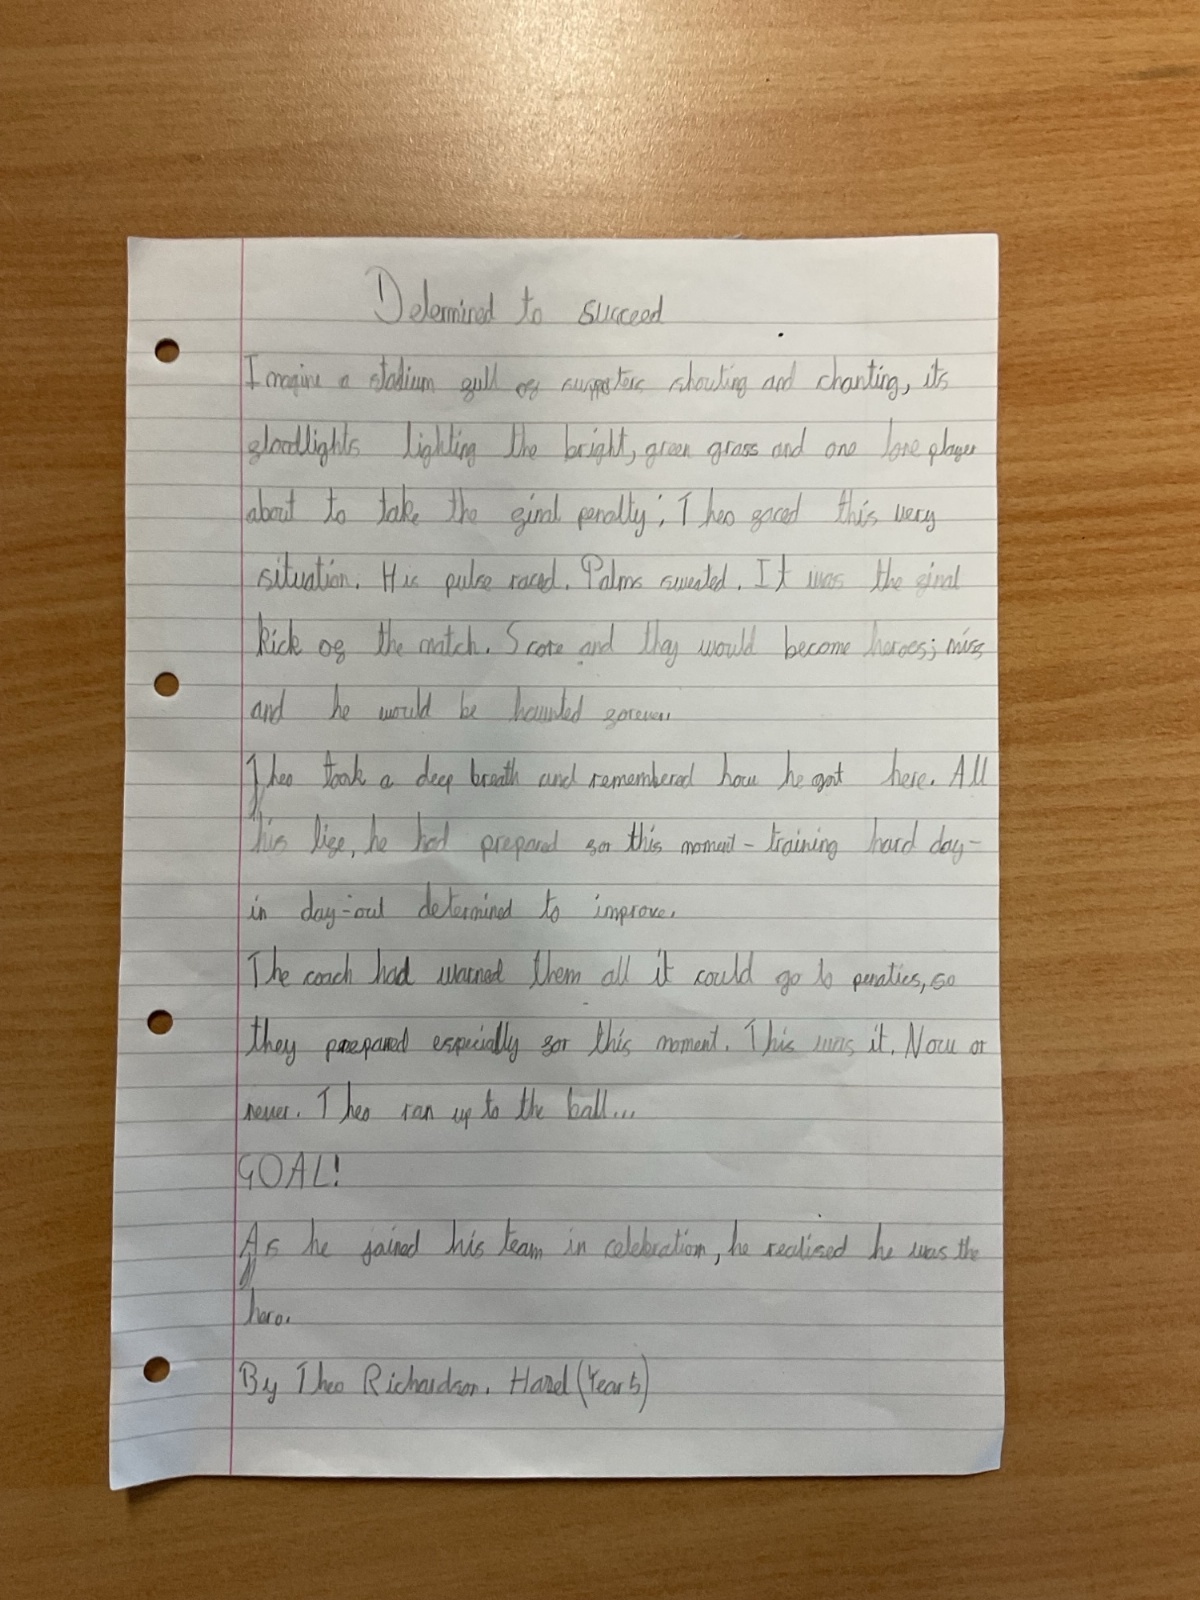 Determined to succeed
Imagine a stadium full of supporters shouting and chanting, its
floodlights lighting the bright, green grass and one lone player
about to take the final penalty; Theo faced this very
situation. His pulse raced. Palms sweated. It was the final
kick of the match. Score and they would become heroes; miss
and he would be haunted forever.
Theo took a deep breath and remembered how he got here. All
his life, he had prepared for this moment - training hard day-
in day-out determined to improve.
The coach had warned them all it could go to penalties, so
they prepared especially for this moment. This was it. Now or
never. Theo ran up to the ball...
GOAL!
As he joined his team in celebration, he realised he was the
hero.
By Theo Richardson. Hazel (Year 5)